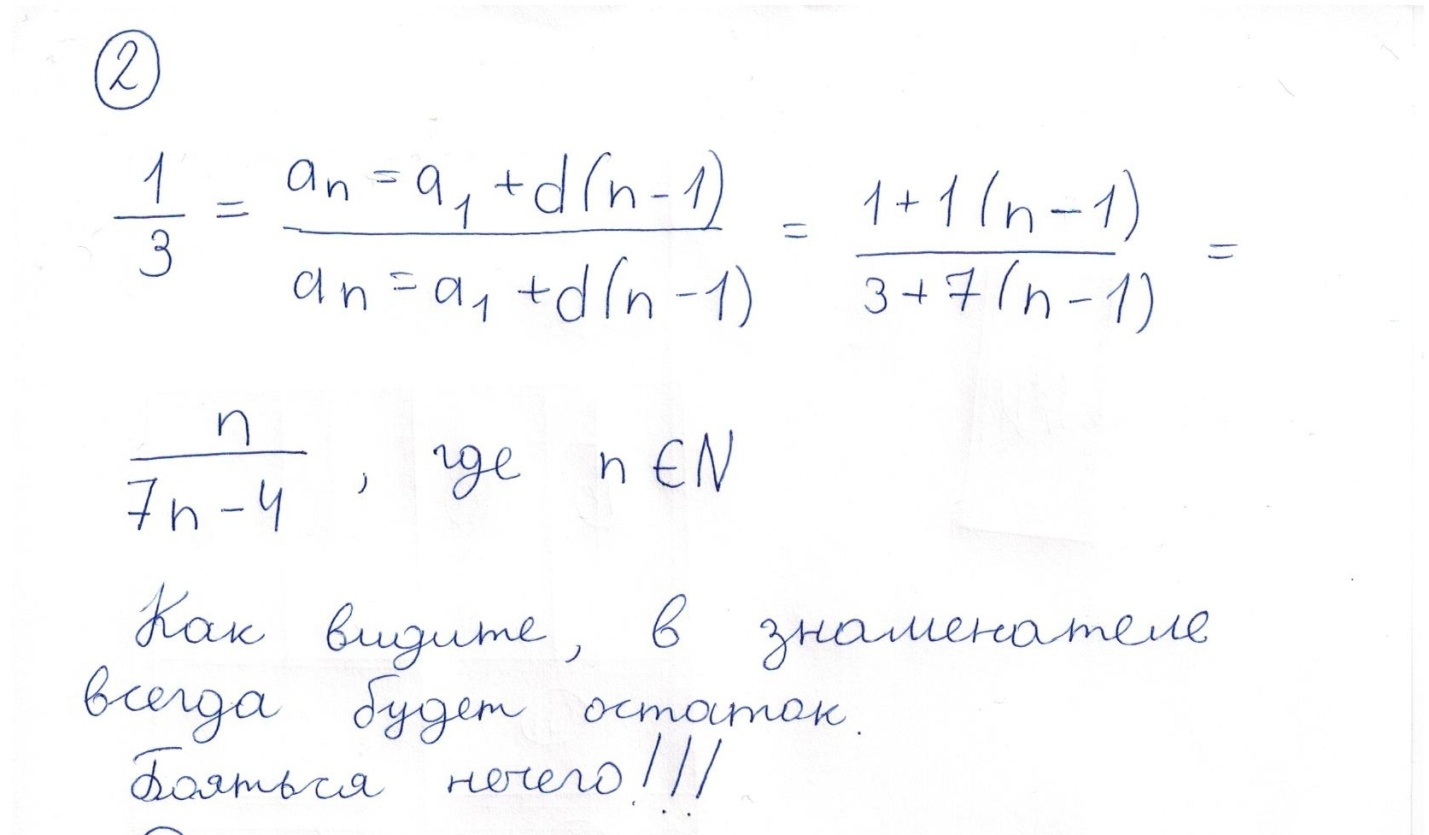 2
1/3 = an = a1 + d(n - 1) / an = a1 + d(n - 1) = 1 + 1(n - 1) / 3 + 7(n - 1) =
n / 7n - 4 , где n ∈ N
Как видите, в знаменателе
всегда будет остаток.
Бояться нечего!!!